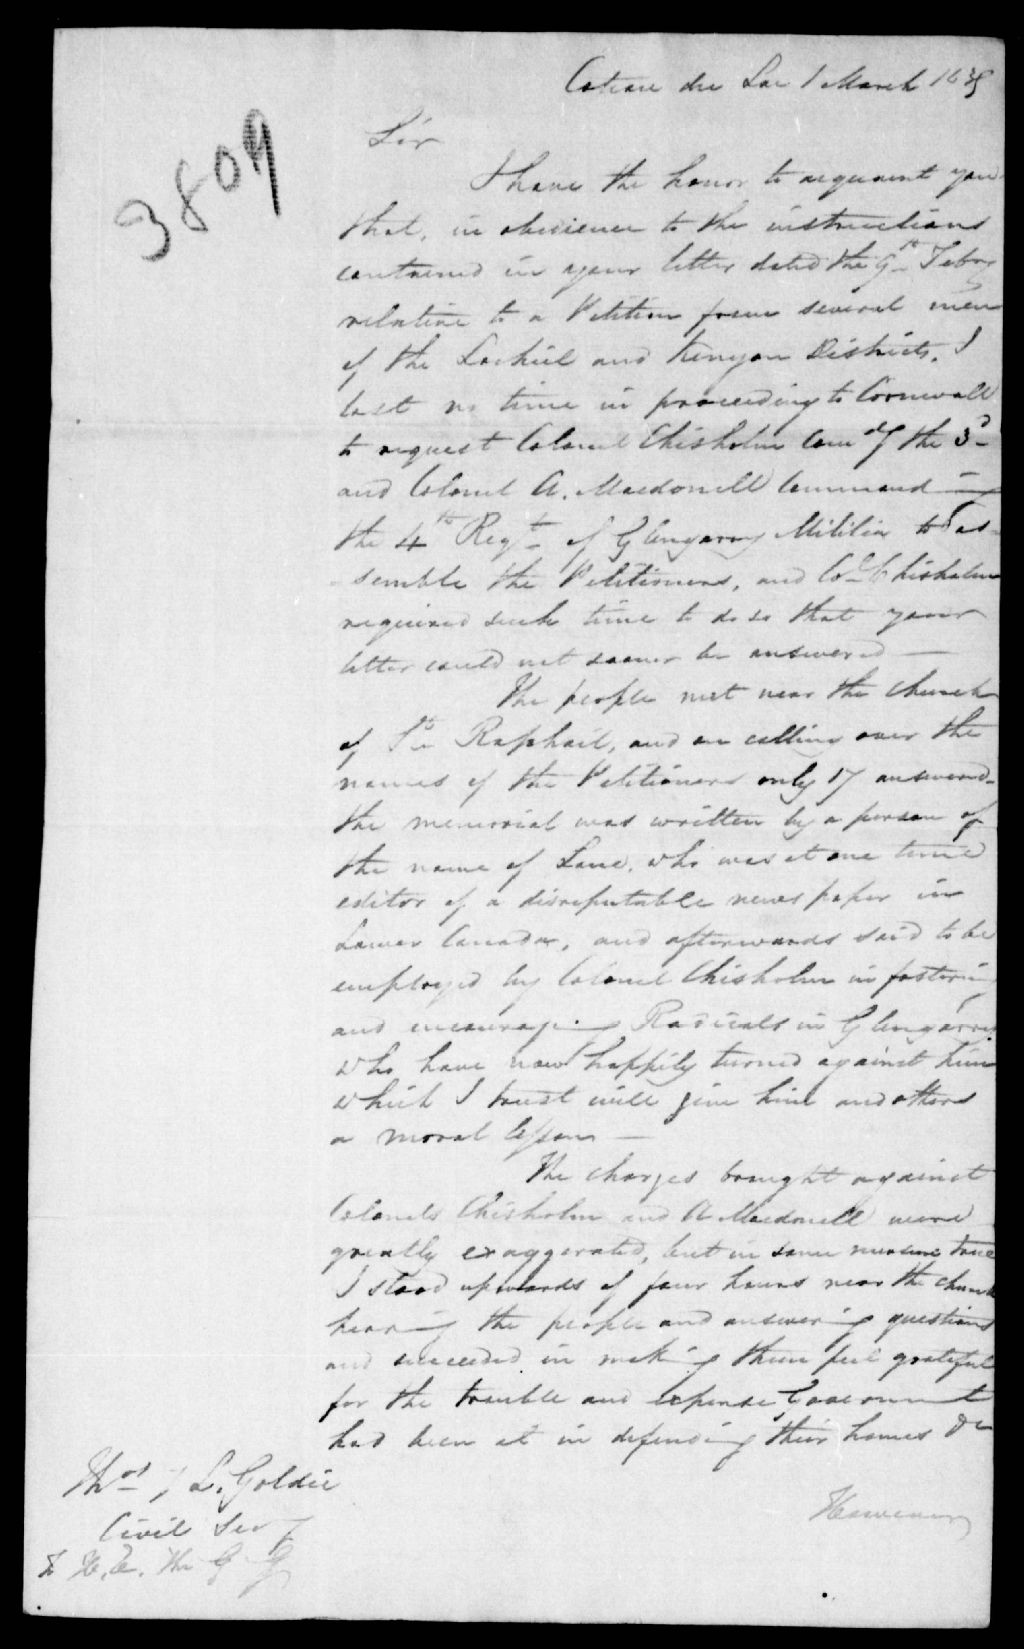 Coteau du Lac 1 March 1839
3809
Sir
I have the honor to acquaint you
that, in obedience to the instructions
contained in your letter dated the 9th Feby
relative to a Petition from several men
of the Lochiel and Kenyon Districts. I
lost no time in proceeding to Cornwall
to request Colonel Chisholm Comdg the 3d
and Colonel A. Macdonell Commanding
the 4th Regt of Glengarry Militia to as-
-semble the Petitioners, and Col Chisholm
required such time to do so that your
letter could not sooner be answered —
The people met near the church
of St Raphail, and on calling over the
names of the Petitioners only 17 answered-
the memorial was written by a person of
the name of Lane, who was at one time
editor of a disreputable news paper in
Lower Canada, and afterwards said to be
employed by Colonel Chisholm in fostering
and encouraging Radicals in Glengarry
who have now happily turned against him
which I trust will give him and others
a moral lesson —
The charges brought against
Colonels Chisholm and A Macdonell were
greatly exaggerated, but in some measure true
I stood upwards of four hours near the church
hearing the people and answering questions
and succeeded in making them feel grateful
for the trouble and expense Government
had been at in defending their homes &c
However
Thos L. Goldie
Civil Secy
To H.E. the G G